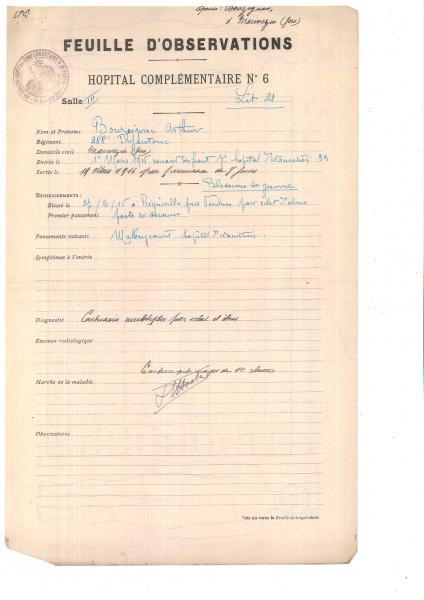 à Mauvezin (Gers)
FEUILLE D'OBSERVATIONS
HOPITAL COMPLÉMENTAIRE N° 6
Salle III Lit 21
Nom et Prénoms Bourgignac Arthur
Régiment 288e Infanterie
Domicile civil Mauvezin (Gers)
Entrée le 1er Mars 1915 venant du front hôpital Evacuation 33
Sortie le 19 1916 par permission de 7 jours
Blessure de guerre
RENSEIGNEMENTS:
Blessé le 27/2/15 à près Verdun par éclat d'obus
Premier pansement poste de secours
Pansements suivants hôpital d'évacuation
Symptômes à l'entrée
Diagnostic Contusions multiples par éclat d'obus
Examen radiologique
major de 2e classe
Marche de la maladie
Observations
Voir au verso la Feuille de température.